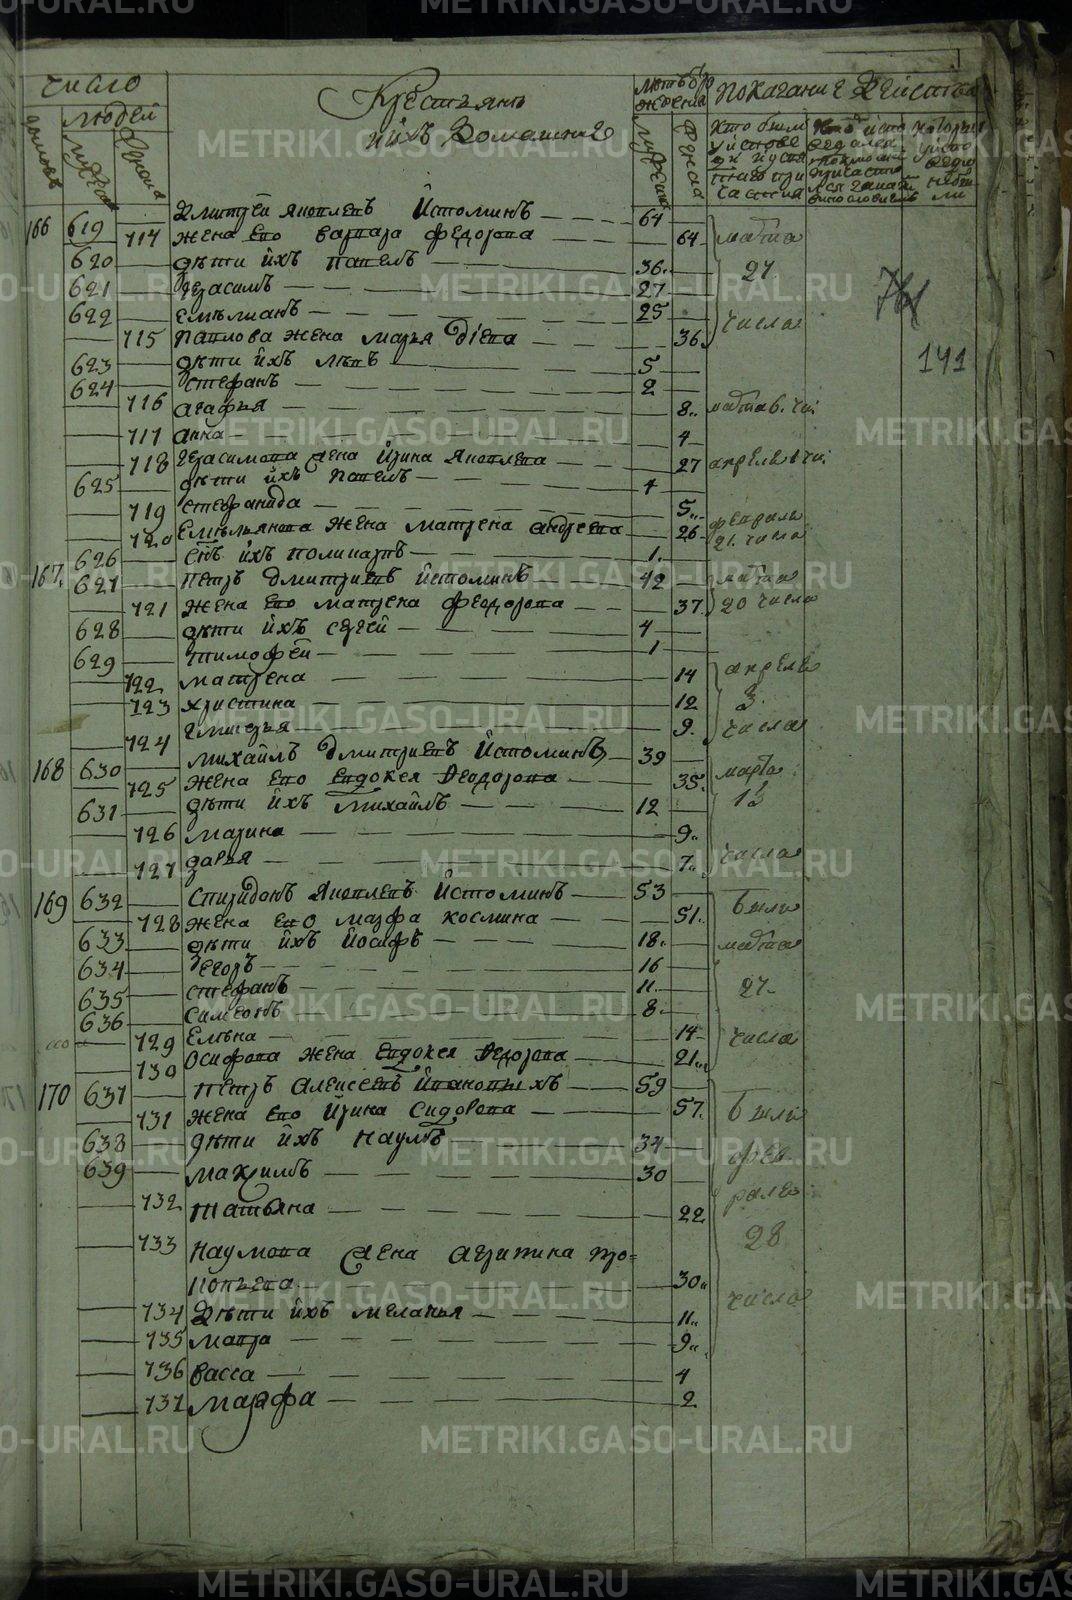 METRIKI.GASO-URAL.RU
число
Крестьянъ
лѣтъ рожденiя
показание действа
людей
ихъ Домашние
166 619 Дмитрей яковлевъ Истоминъ 64
714 жена ево варвара федорова 64 марта
620 дѣти ихъ павелъ 36 27
621 герасимъ 27
622 емельянъ 25 числа
715 павлова жена марья 36
623 дѣти ихъ левъ 5
624 стефанъ 2
716 агафья 8 марта 6 чи:
717 анна 4
718 герасимова жена Ирина яковлева 27 апреля 1 чи:
625 дѣти ихъ павелъ 4
719 стефанида 5 февраля
720 емельянова жена матрена андреева 26 21 числа
626 снъ ихъ поликарпъ 1
167 627 петръ дмитриевъ Истоминъ 42 марта
721 жена ево матрена феодорова 37 20 числа
628 дѣти ихъ сергей 4
629 тимофей 1
722 матрена 14 апреля
723 христина 12 3
724 гликерья 9 числа
168 630 михайлъ дмитриевъ Истоминъ 39
725 жена ево евдокея Феодорова 35 марта
631 дѣти ихъ михайлъ 12 13
726 марина 9
727 дарья 7 числа
169 632 спиридонъ яковлевъ Истоминъ 53
728 жена ево марфа космина 51 были
633 дѣти ихъ Иосифъ 18 марта
634 егоръ 16
635 стефанъ 11 27
636 симеонъ 8
729 елена 14 числа
730 осифова жена евдокея Федорова 21
170 637 петръ алексеевъ Ивановыхъ 59
731 жена ево Ирина Сидорова 57 были
638 дѣти ихъ наумъ 34 фев
639 максимъ 30
732 татьяна 22 раля
733 наумова жена агрипина про= 28
копьева 30
734 Дѣти ихъ меланья 11 числа
735 мавра 9
736 васса 4
737 марфа 2
141